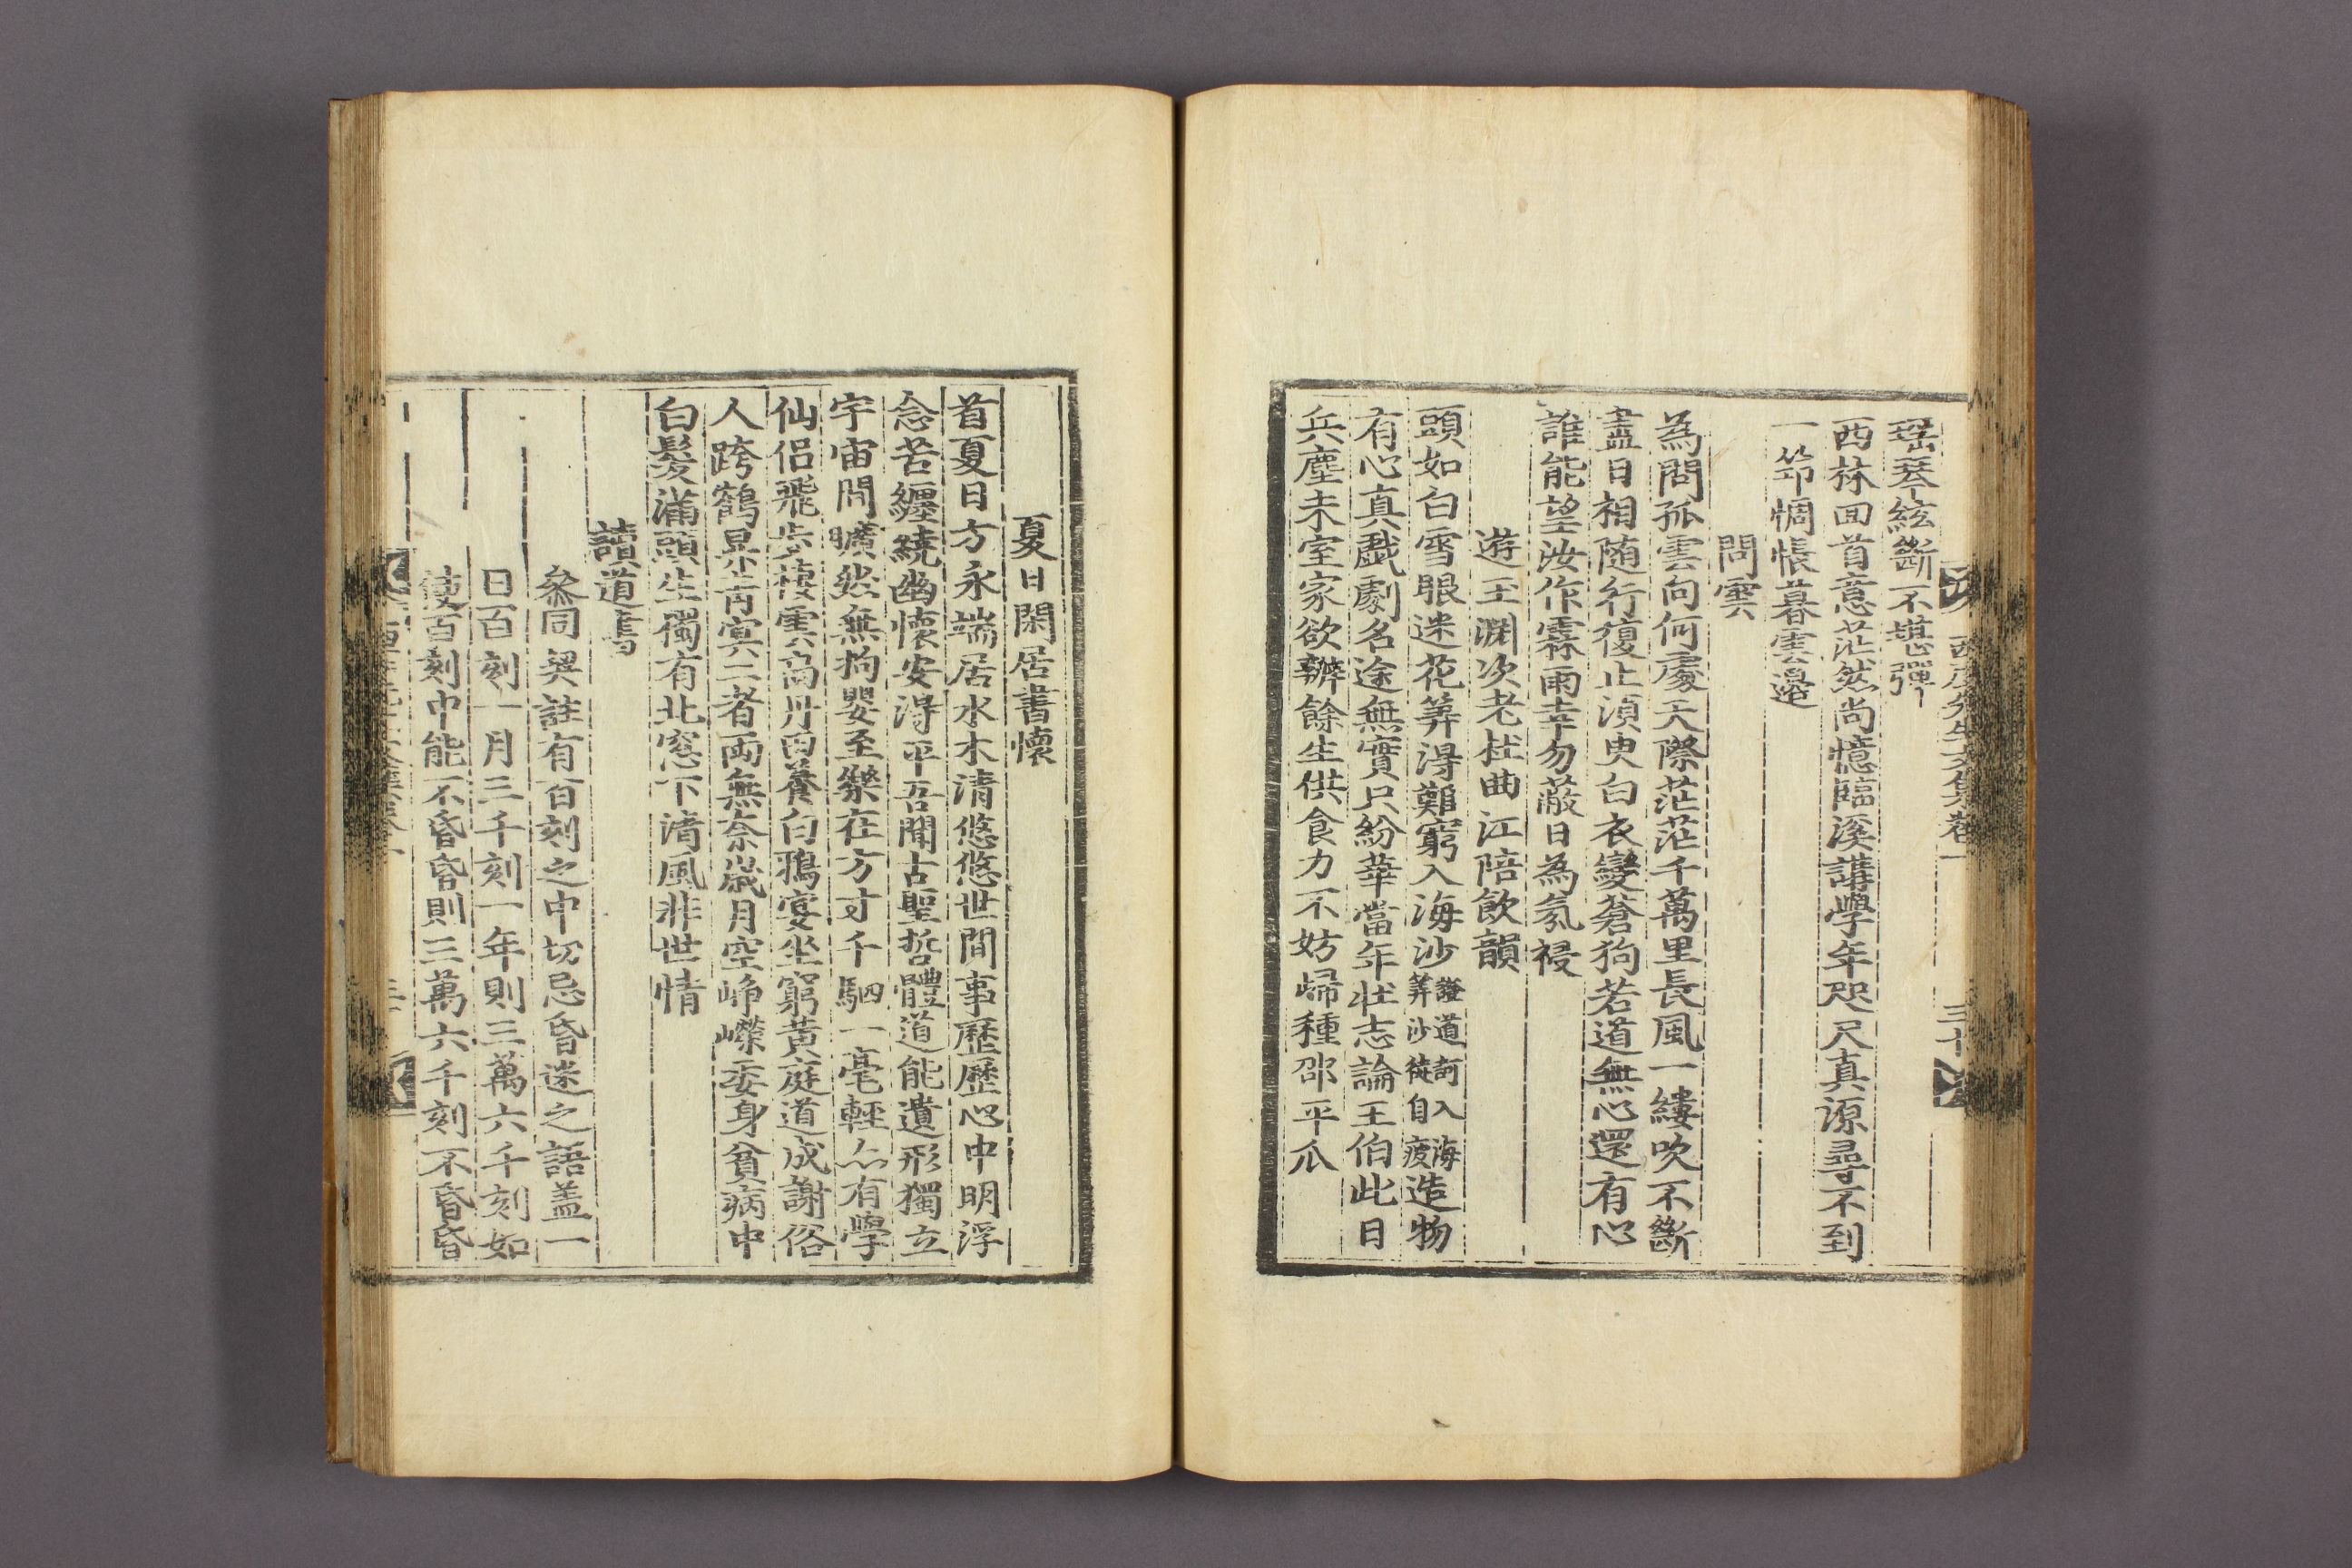 西厓先生文集卷一
三十
瑶琴絃斷不堪彈
西林回首意茫然尚憶臨溪講學年咫尺真源尋不到
一笻惆悵暮雲邊
問雲
為問孤雲向何處天際茫茫千萬里長風一縷吹不斷
盡日相随行復止湏臾白衣變蒼狗若道無心還有心
誰能望汝作霖雨幸勿蔽日為氛祲
遊玉淵次老杜曲江陪飲韻
頭如白雪眼迷花筭得難窮入海沙證道訶入海筭沙徒自疲造物
有心真戱劇名途無實只紛華當年壮志論王伯此日
兵塵未室家欲辦餘生供食力不妨歸種邵平瓜
夏日閑居書懷
首夏日方永端居水木清悠悠世間事歷歷心中明浮
念苦纒繞幽懷安得平吾聞古聖哲體道能遺形獨立
宇宙間曠然無拘嬰至樂在方寸千駟一毫輕亦有學
仙侣飛步棲雲高丹田養白鴉宴坐窮黃庭道成謝俗
人跨鶴昇青冥二者兩無奈歲月空崢嶸委身貧病中
白髮滿頭生獨有北窓下清風非世情
讀道書
叅同契註有百刻之中切忌昏迷之語盖一
日百刻一月三千刻一年則三萬六千刻如
使百刻中能不昏昏則三萬六千刻不昏昏